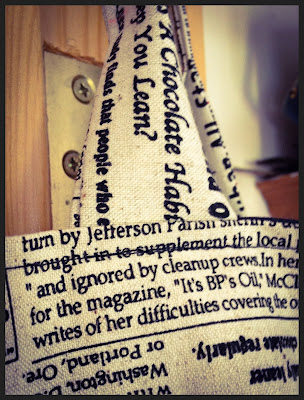 A Chocolate Hab
You Lean?
dy finds that people who e
turn by Jefferson Parish sheriff's de
brought in to supplement the local
" and ignored by cleanup crews.In her
for the magazine, "It's BP's Oil," McC
writes of her difficulties covering the o
or Portland, Ore.
Washington, D.
colate regularly.
ly leaner